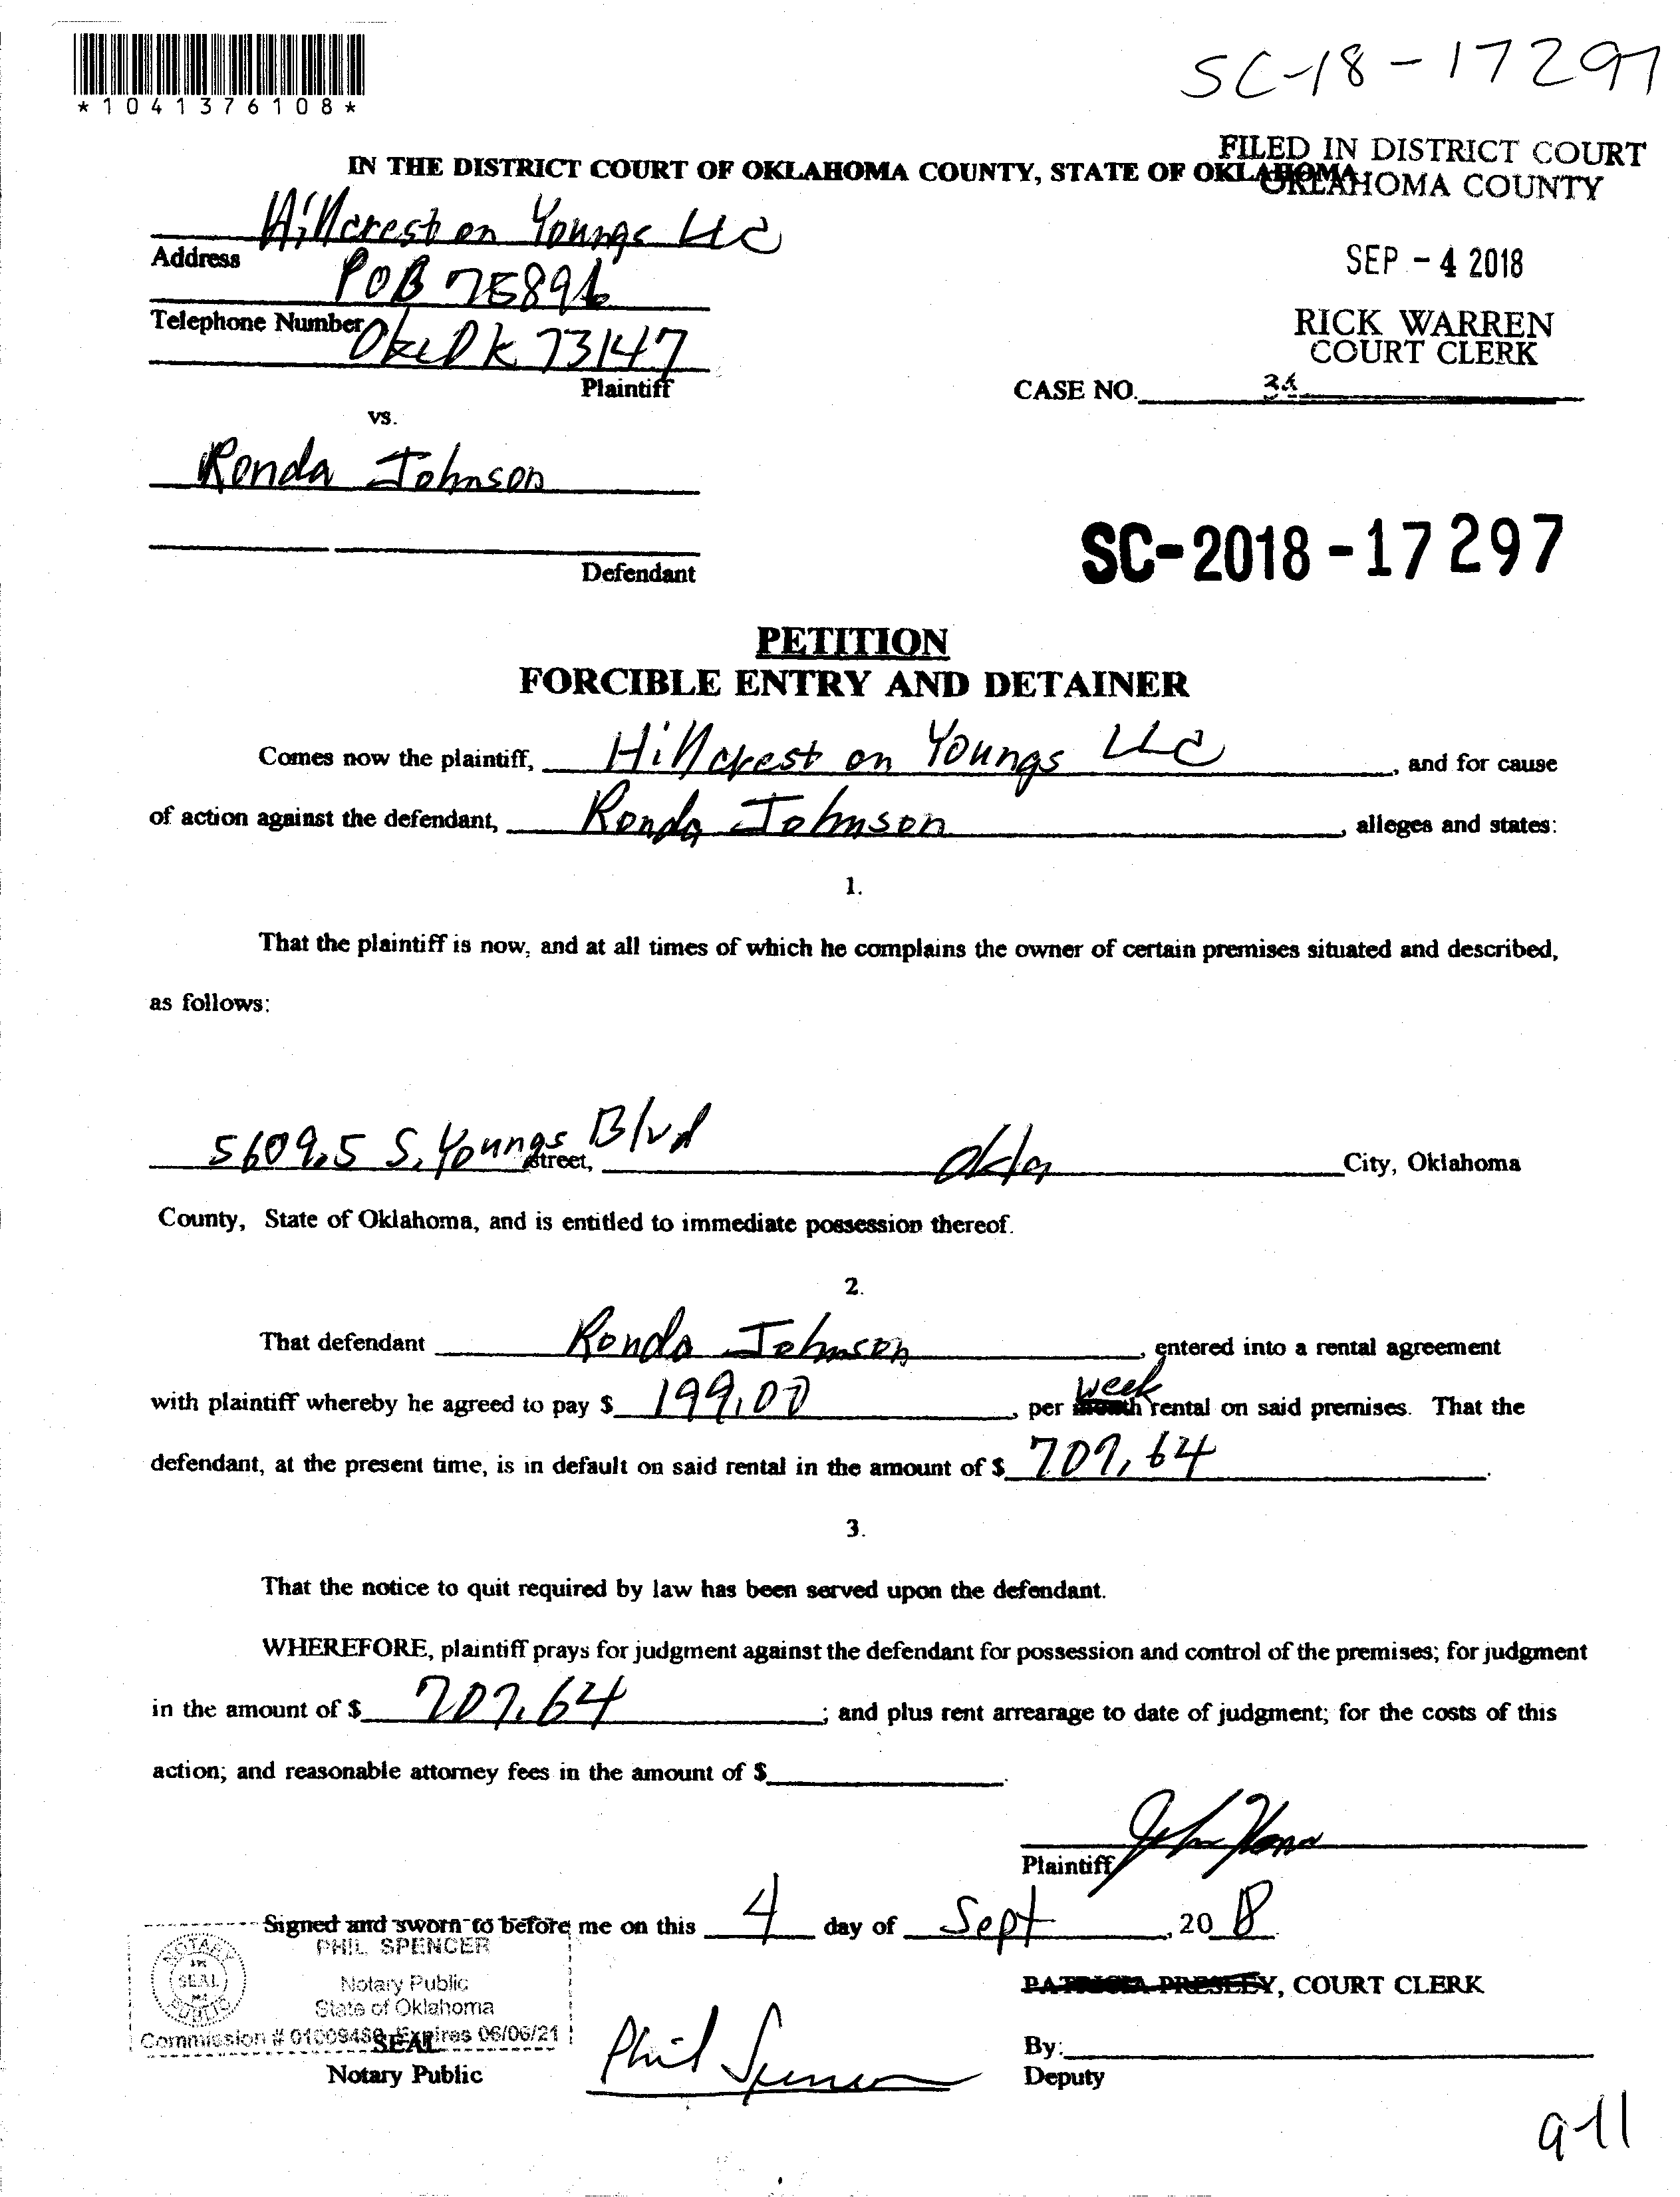 SC-18-17297
*1041376108*
FILED IN DISTRICT COURT
OKLAHOMA COUNTY
IN THE DISTRICT COURT OF OKLAHOMA COUNTY, STATE OF OKLAHOMA
Hillcrest on Youngs LLC
Address
POB 75896
SEP - 4 2018
Telephone Number
Okc Ok 73147
RICK WARREN
COURT CLERK
Plaintiff
CASE NO.
vs.
Ronda Johnson
SC-2018-17297
Defendant
PETITION
FORCIBLE ENTRY AND DETAINER
Comes now the plaintiff, Hillcrest on Youngs LLC, and for cause
of action against the defendant, Ronda Johnson, alleges and states:
1.
That the plaintiff is now, and at all times of which he complains the owner of certain premises situated and described,
as follows:
5609.5 S. Youngs Blvd street, Okla City, Oklahoma
County, State of Oklahoma, and is entitled to immediate possession thereof.
2.
That defendant Ronda Johnson, entered into a rental agreement
with plaintiff whereby he agreed to pay $ 199.00, per month week rental on said premises. That the
defendant, at the present time, is in default on said rental in the amount of $ 707.64.
3.
That the notice to quit required by law has been served upon the defendant.
WHEREFORE, plaintiff prays for judgment against the defendant for possession and control of the premises; for judgment
in the amount of $ 707.64; and plus rent arrearage to date of judgment; for the costs of this
action; and reasonable attorney fees in the amount of $
Plaintiff
Signed and sworn to before me on this 4 day of Sept, 2018
PHIL SPENCER
NOTARY PUBLIC
SEAL
Notary Public
State of Oklahoma
PATRICIA PRESLEY, COURT CLERK
Commission # 01009468 Expires 06/06/21
SEAL
Phil Spencer
By:
Notary Public
Deputy
9-11